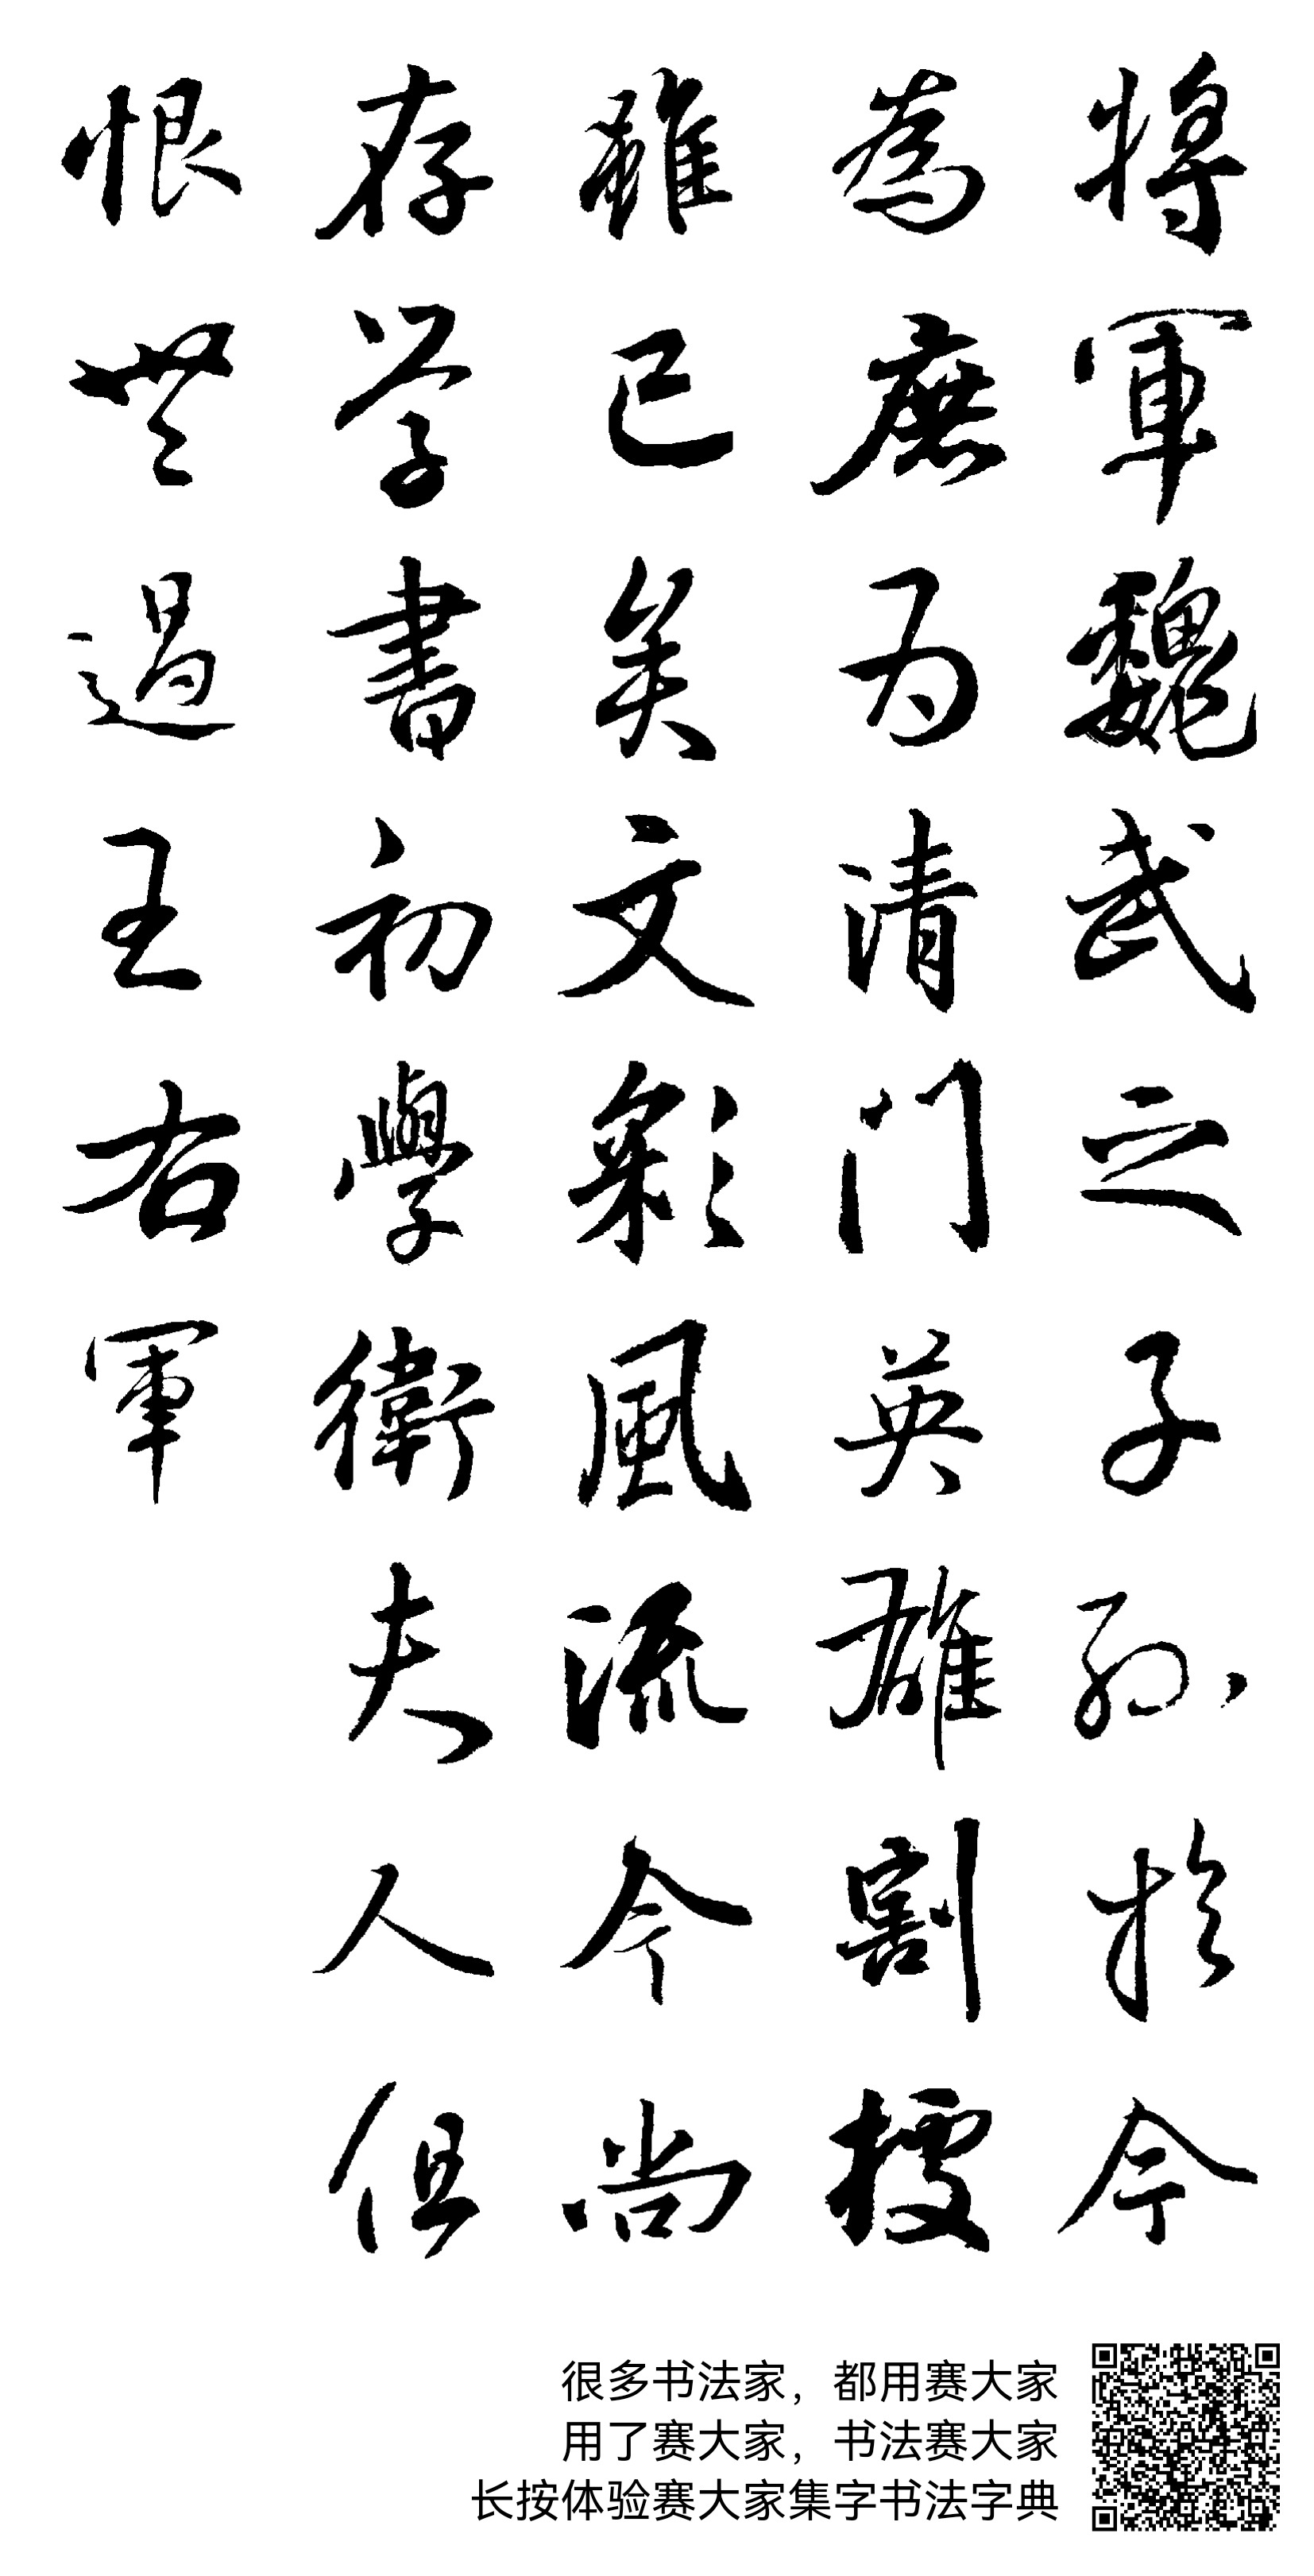 將軍魏武之子孫於今
為庶为清门英雄割據
雖已矣文彩風流今尚
存学書初學衛夫人但
恨無過王右軍
很多书法家，都用赛大家
用了赛大家，书法赛大家
长按体验赛大家集字书法字典